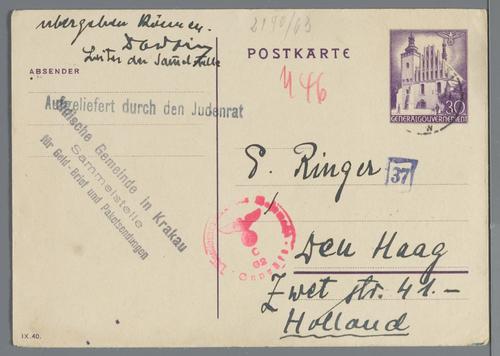 übergeben können.
Leiter der Sammelstelle
2190/63
POSTKARTE
446
ABSENDER
Aufgeliefert durch den Judenrat
Jüdische Gemeinde in Krakau
Sammelstelle
für Geld-Brief und Paketsendungen
30
GENERALGOUVERNEMENT
S. Ringer
37
Den Haag
Zwet str. 41.-
Holland
IX.40.